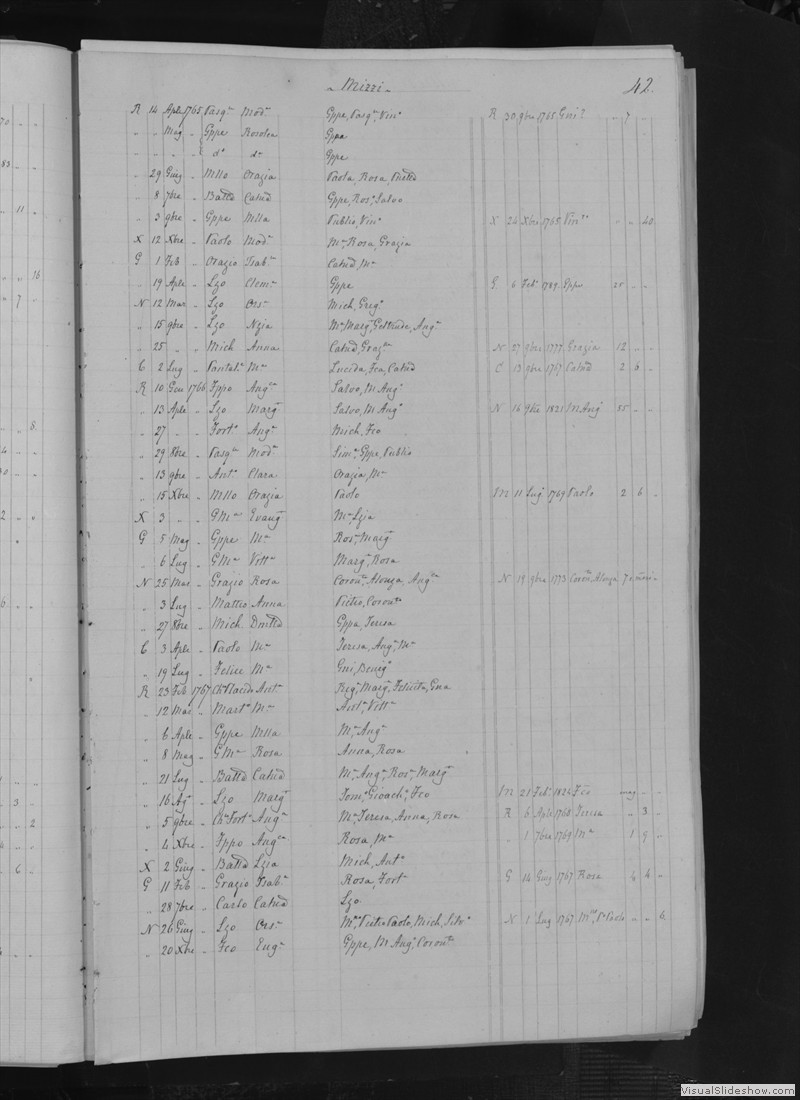 Mizzi 42
R 14 Aple 1765 Pasqe Moda Gppe, Pasqe, Vino R 30 9bre 1765 " 7 "
" " Mag " Gppe Rosolea Gppa
" " " " do do Gppe
" 29 Giug " Mllo Orazia Paola, Rosa,
" 8 7bre " Battd Catnd Gppe, Rosa, Salvo
" 3 9bre " Gppe Mlla Publio, Vino X 24 Xbre 1765 Vino " " 40
X 12 Xbre " Paolo Moda Ma Rosa, Grazia
G 1 Feb " Orazio Isaba Catnd, Ma
" 19 Aple " Lzo Clema Gppe G 6 Feb 1789 Gppe 25 " "
N 12 Mar " Lzo Orsa Mich, Grego
" 15 9bre " Lzo Nzia Ma Margt, Geltrude, Anga
" 25 " " Mich Anna Catnd, Graza N 27 9bre 1777 Grazia 12 " "
C 2 Lug " Pantalo Ma Lucida, Fca, Catnd C 13 9bre 1767 Catnd 2 6 "
R 10 Gen 1766 Fppo Anga Salvo, M Anga
" 13 Aple " Lzo Margt Salvo, M Anga N 16 9bre 1821 M Ang 55 " "
" 27 " " Forto Anga Mich, Fco
" 29 8bre " Pasqe Moda Sime, Gppe, Publio
" 13 9bre " Anto Clara Orazia, Ma
" 15 Xbre " Mllo Orazia Paolo M 11 Lug 1769 Paolo 2 6 "
X 3 " " GMa Evangt Ma Lzia
G 5 Mag " Gppe Ma Rosa Margt
" 6 Lug " GMa Vitta Margt, Rosa
N 25 Mar " Grazio Rosa Corona, Alonza, Anga N 19 9bre 1773 Corona, Alonza 7
" 3 Lug " Matteo Anna Pietro, Corona
" 27 8bre " Mich Dmtla Gppa, Teresa
C 3 Aple " Paolo Ma Teresa, Anga, Ma
" 19 Lug " Felice Ma Gni, Benigo
R 23 Feb 1767 Placido Anta Rega, Margt, Felicita, Gna
" 12 Mar " Marto Ma Anta, Vitta
" 6 Aple " Gppe Mlla Ma, Ang
" 8 Mag " GMa Rosa Anna, Rosa
" 21 Lug " Battd Catnd Ma, Anga, Rosa, Margt
" 16 Ago " Lzo Margt Tomo, Gioacho, Fco M 21 Feb 1824 Fco
" 5 9bre " Forto Anga Ma, Teresa, Anna, Rosa R 6 Aple 1768 Teresa " 3 "
" 4 Xbre " Fppo Anga Rosa, Ma " 1 7bre 1769 Ma 1 9 "
X 2 Giug " Battd Lzia Mich, Anto
G 11 Feb " Grazio Isaba Rosa, Fort G 14 Giug 1767 Rosa " 4 "
" 28 7bre " Carlo Catnd Lzo
N 26 Giug " Lzo Orsa Ma, Pietro Paolo, Mich, Silvo N 1 Lug 1767 Paolo " " 6
" 20 Xbre " Fco Euga Gppe, M Anga, Corona
VisualSlideshow.com